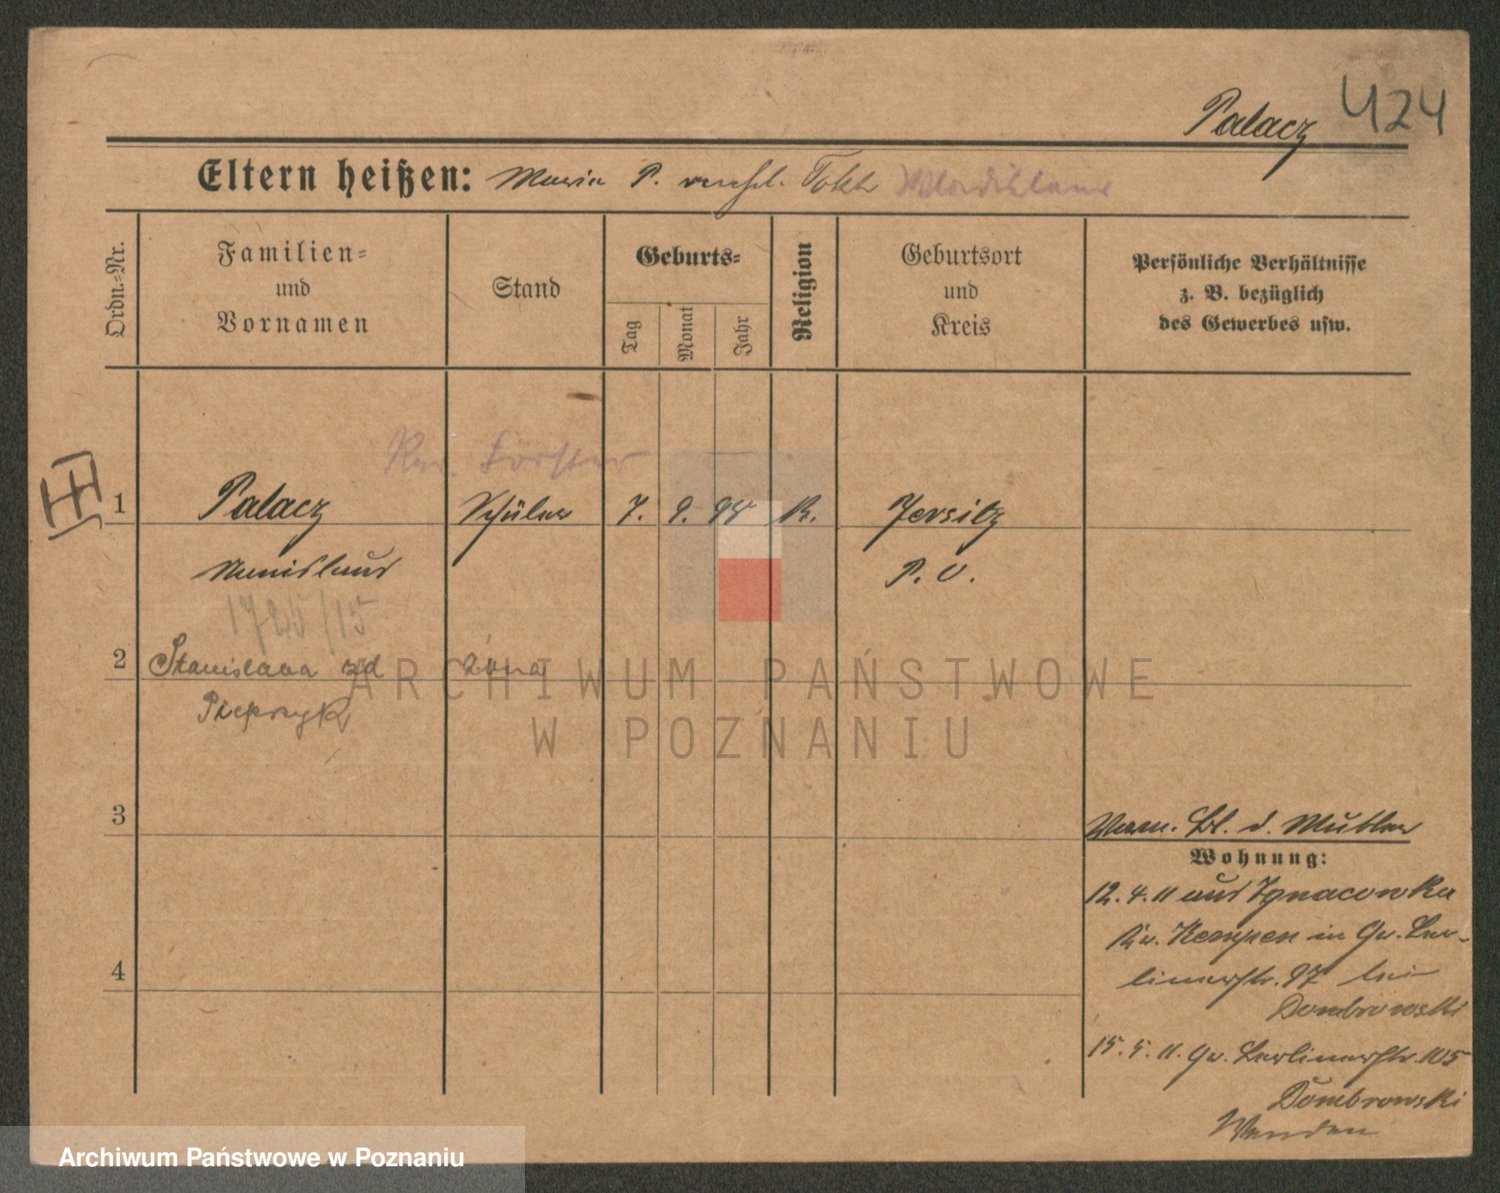 424
Palacz
Eltern heißen: Maria P. verehl.
Ordn.-Nr.
Familien-
und
Vornamen
Stand
Geburts-
Tag
Monat
Jahr
Religion
Geburtsort
und
Kreis
Persönliche Verhältnisse
z. B. bezüglich
des Gewerbes usw.
1 Palacz Schüler 7. 9. 98 K. Jersitz
Stanislaus P. O.
1785/15
2 Stanislawa zd żona
Pieprzyk
3
Mutter
Wohnung:
12. 4. 11 aus Ignacowka
Kr. Kempen in Gr. Ber-
linerstr. 97 bei
Dombrowski
4
15. 5. 11. Gr. Berlinerstr. 105
Dombrowski
Wenden
ARCHIWUM PAŃSTWOWE
W POZNANIU
Archiwum Państwowe w Poznaniu